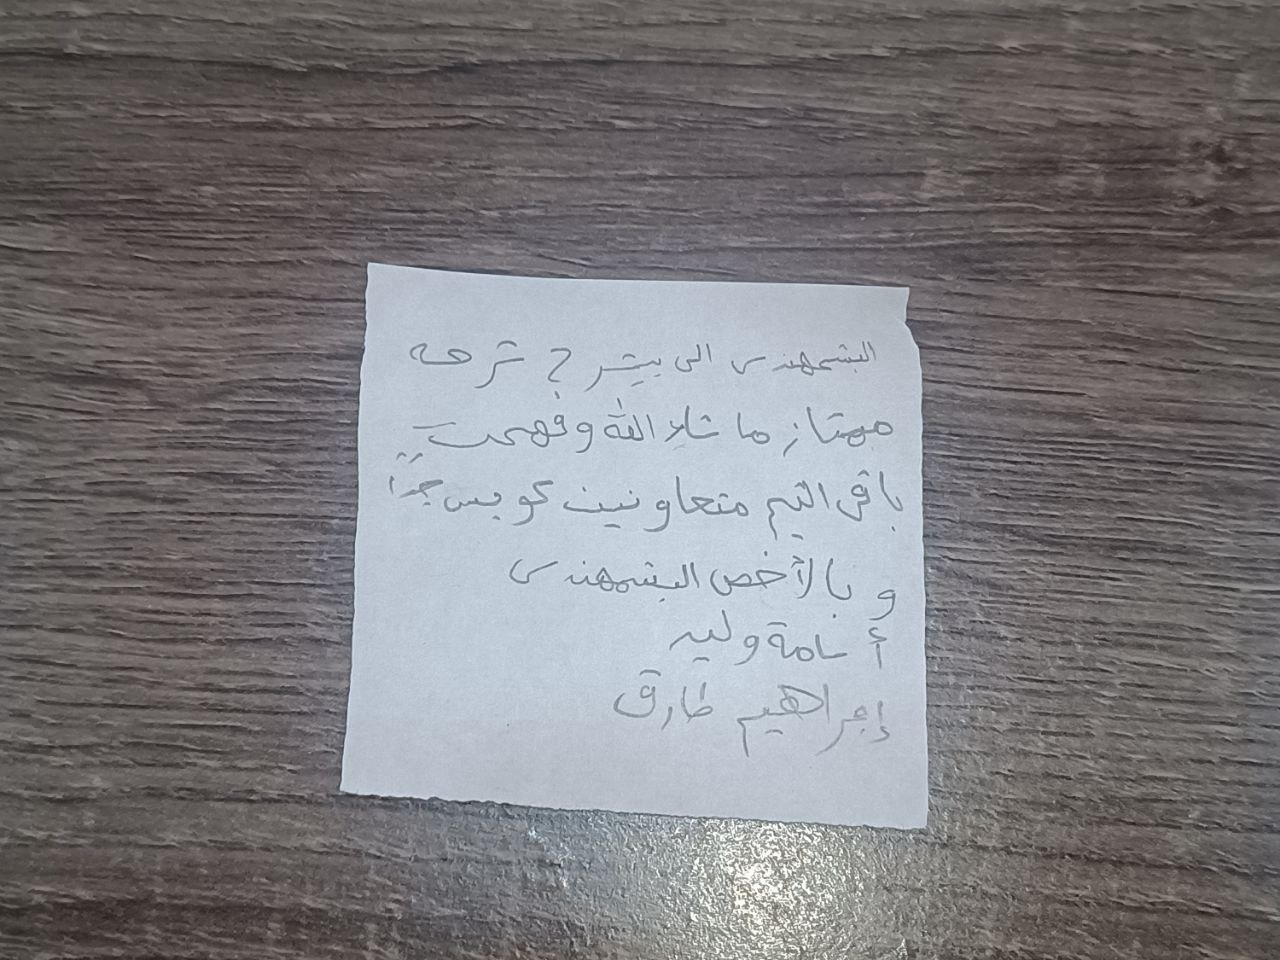 البشمهندس الى بيشرح شرحه
ممتاز ما شاء الله وفهمت
باقى التيم متعاونين كويس جدًا
و بالأخص البشمهندس
أسامة وليد
إبراهيم طارق